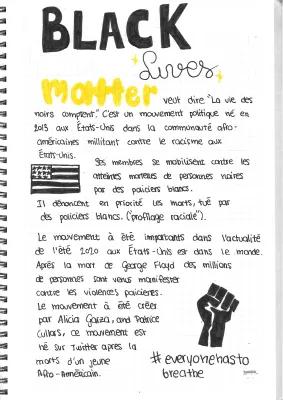 BLACK
Lives
matter veut dire "La vie des
noirs comptent." C'est un mouvement politique né en
2013 aux États-Unis dans la communauté afro-
américaines militant contre le racisme aux
États-Unis.
Ses membres se mobilisent contre les
atteintes mortelles de personnes noires
par des policiers blancs.
Il dénoncent en priorité les morts, tué par
des policiers blancs. ("profilage raciale").
Le mouvement à été importants dans l'actualité
de l'été 2020 aux États-Unis est dans le monde.
Après la mort de George Floyd des millions
de personnes sont venus manifester
contre les violences policières.
Le mouvement à été créer
par Alicia Garza, and Patrice
Cullors, ce mouvement est
né sur Twitter après la
morts d'un jeune
Afro-Américain.
#everyonehasto
breathe